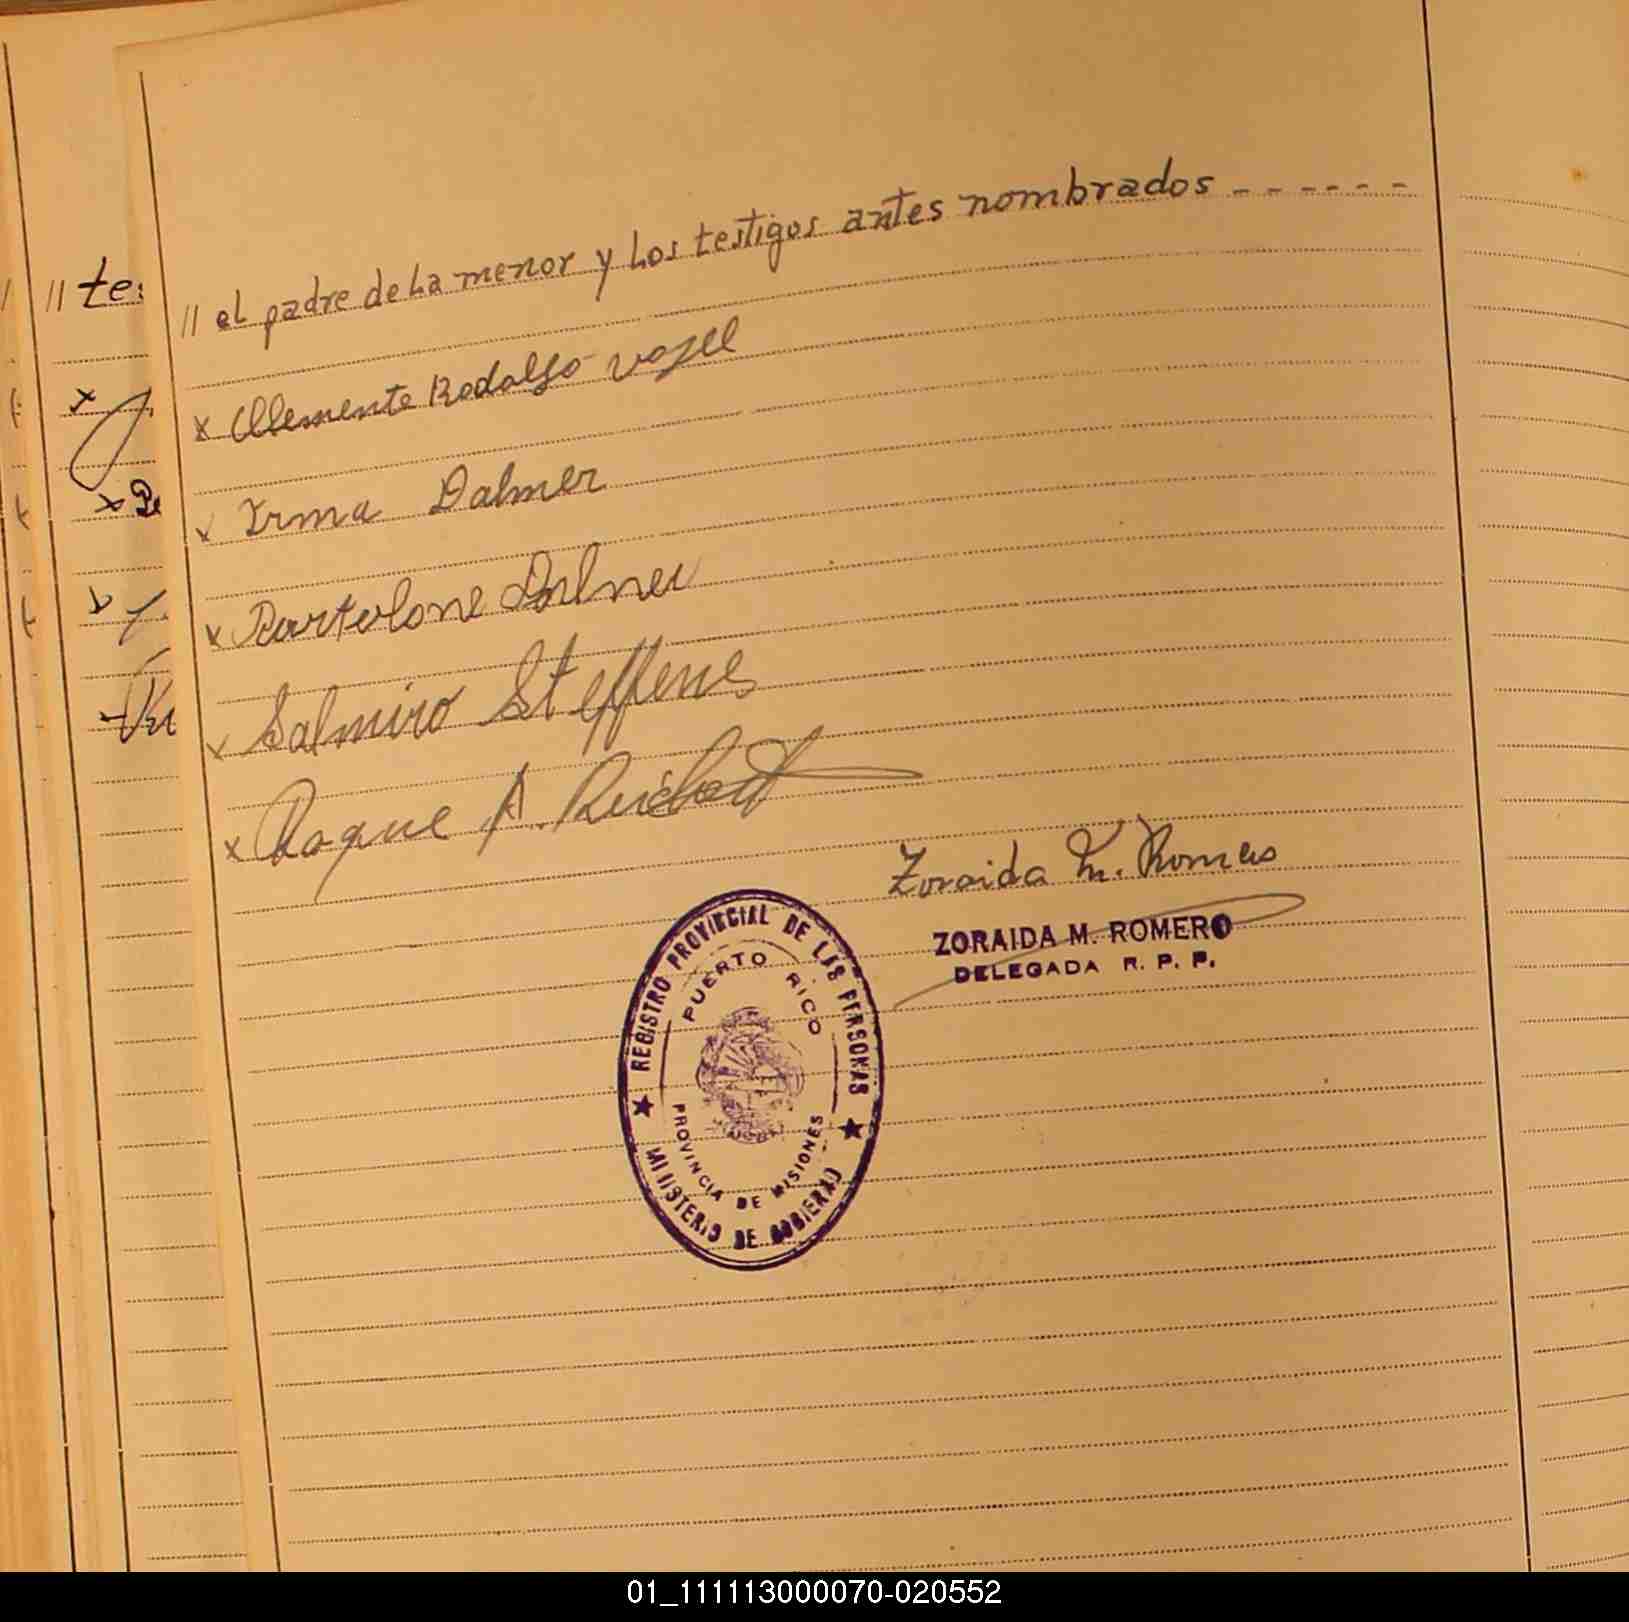 // te
// el padre de La menor y Los testigos antes nombrados - - - - - -
x Clemente Rodolfo Vogel
x Irma Dalmer
x Bartolone Dalner
x Salmiro Steffens
x Roque A. Reichert
Zoraida M. Romero
ZORAIDA M. ROMERO
DELEGADA R. P. P.
REGISTRO PROVINCIAL DE LAS PERSONAS
PUERTO RICO
PROVINCIA DE MISIONES
MINISTERIO DE GOBIERNO
01_111113000070-020552